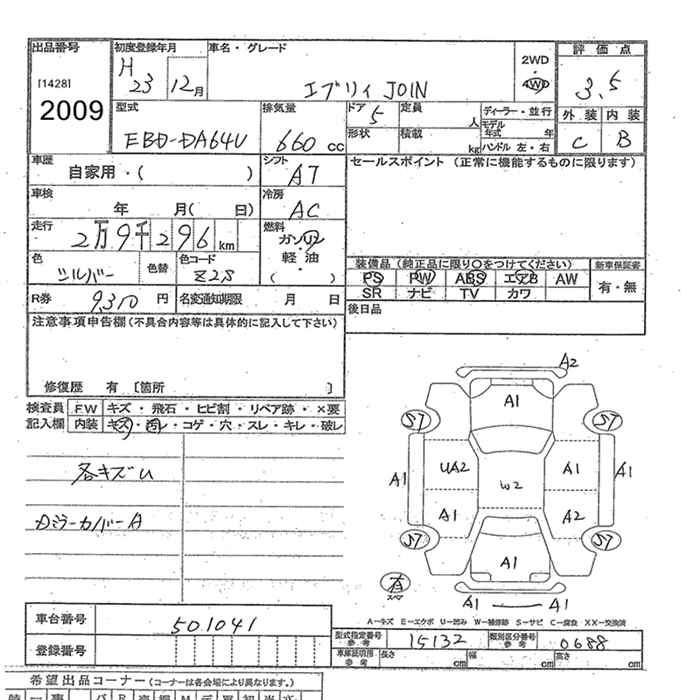 出品番号 初度登録年月 車名・グレード 評価点
[1428] H 23 12月 エブリイ JOIN 2WD ・ 4WD 3.5
2009 型式 排気量 ドア 定員 ディーラー・並行 外装 内装
EBD-DA64V 660 cc 5 人 モデル年式 年 C B
形状 積載 kg ハンドル 左・右
車歴 シフト セールスポイント (正常に機能するものに限ります)
自家用・( ) AT
車検 冷房
年 月( 日) AC
走行 燃料
2万9千296km ガソリン・軽油・( )
色 色替 色コード 装備品 (純正品に限り○をつけてください) 新車保証書
シルバー Z2S PS PW ABS エアB AW 有・無
R券 9,310 円 名変通知期限 月 日 SR ナビ TV カワ
注意事項申告欄(不具合内容等は具体的に記入して下さい) 後日品
修復歴 有 [箇所 ]
検査員 FW キズ・飛石・ヒビ割・リペア跡・×要
記入欄 内装 キズ・汚レ・コゲ・穴・スレ・キレ・破レ
各キズU
Dミラーカバー A
A2
A1
S7 S7
A1 UA2 W2 A1 A1
A1 A2
S7 S7
A1
有 スペア
A1 A1
A-キズ E-エクボ U-凹み W-補修跡 S-サビ C-腐食 XX-交換済
車台番号 501041
型式指定番号 参考 15132 類別区分番号 参考 0688
登録番号 車庫証明用 参考 長さ cm 幅 cm 高さ cm
希望出品コーナー (コーナーは各会場により異なります。)